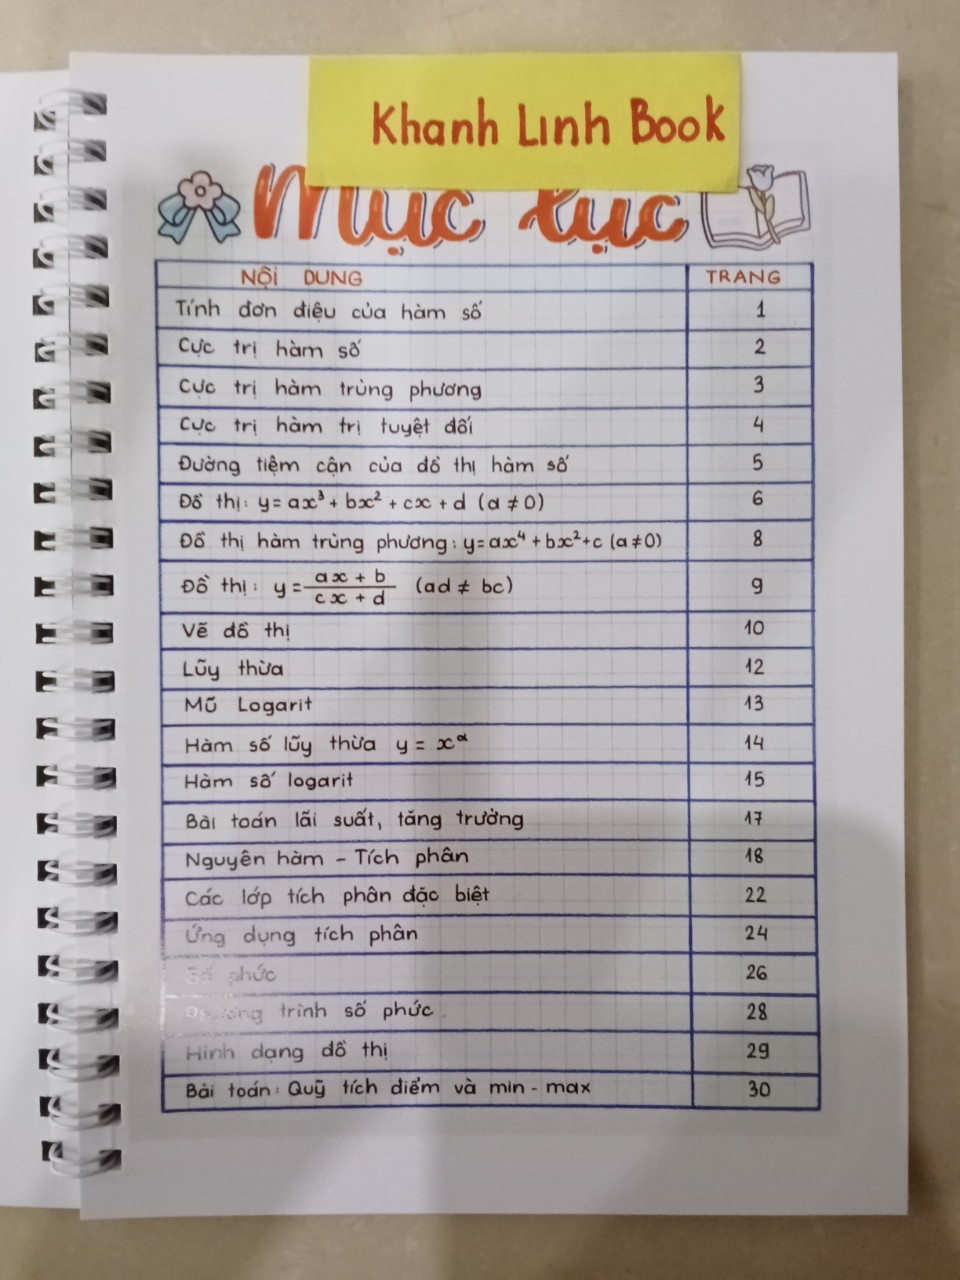 Khanh Linh Book
Mục lục
NỘI DUNG TRANG
Tính đơn điệu của hàm số 1
Cực trị hàm số 2
Cực trị hàm trùng phương 3
Cực trị hàm trị tuyệt đối 4
Đường tiệm cận của đồ thị hàm số 5
Đồ thị: y = ax³ + bx² + cx + d (a ≠ 0) 6
Đồ thị hàm trùng phương: y = ax⁴ + bx² + c (a ≠ 0) 8
Đồ thị: y = (ax + b)/(cx + d) (ad ≠ bc) 9
Vẽ đồ thị 10
Lũy thừa 12
Mũ Logarit 13
Hàm số lũy thừa y = x^α 14
Hàm số logarit 15
Bài toán lãi suất, tăng trưởng 17
Nguyên hàm - Tích phân 18
Các lớp tích phân đặc biệt 22
Ứng dụng tích phân 24
Số phức 26
Phương trình số phức 28
Hình dạng đồ thị 29
Bài toán: Quỹ tích điểm và min - max 30